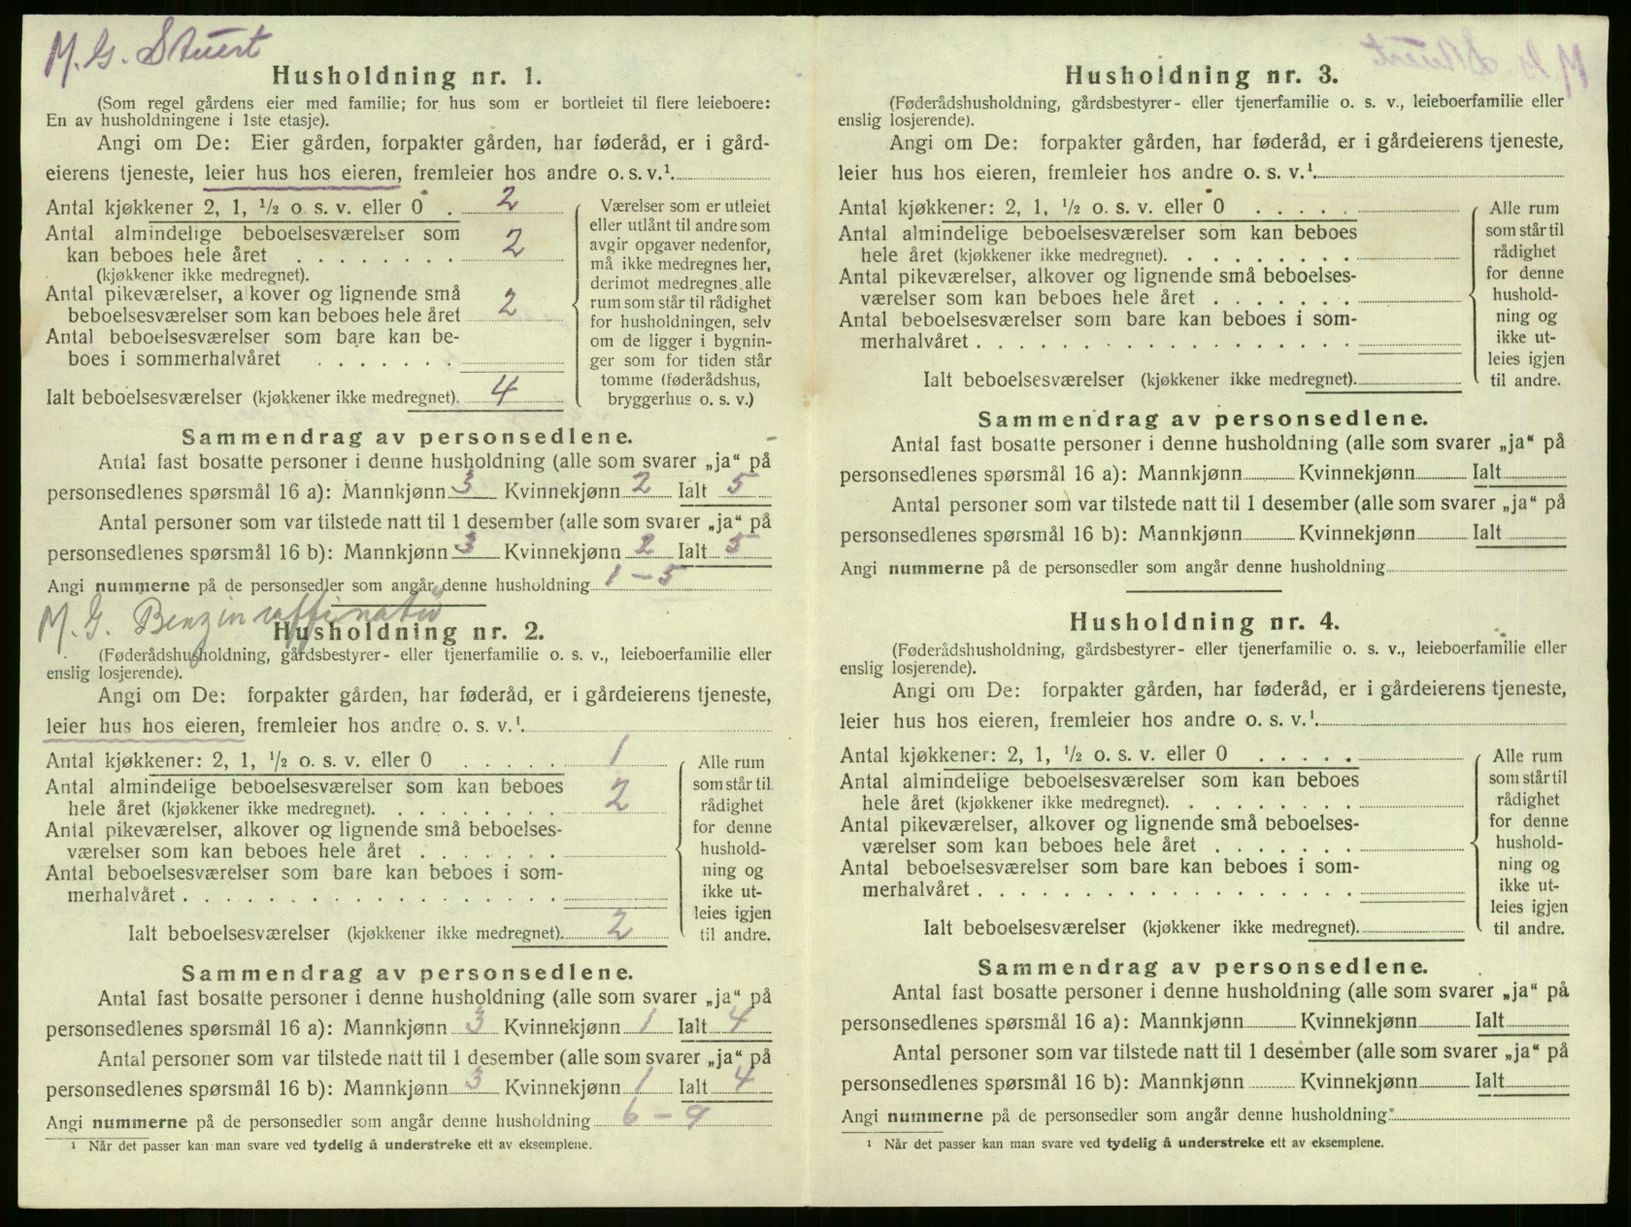 M. G. Stuert
Husholdning nr. 1.
(Som regel gårdens eier med familie; for hus som er bortleiet til flere leieboere:
En av husholdningene i 1ste etasje).
Angi om De: Eier gården, forpakter gården, har føderåd, er i gård-
eierens tjeneste, leier hus hos eieren, fremleier hos andre o. s. v.¹.
Antal kjøkkener 2, 1, ½ o. s. v. eller 0 . 2
Antal almindelige beboelsesværelser som
kan beboes hele året . . . . . . . . 2
(kjøkkener ikke medregnet).
Antal pikeværelser, alkover og lignende små
beboelsesværelser som kan beboes hele året 2
Antal beboelsesværelser som bare kan be-
boes i sommerhalvåret . . . . . .
Ialt beboelsesværelser (kjøkkener ikke medregnet). 4
Værelser som er utleiet
eller utlånt til andre som
avgir opgaver nedenfor,
må ikke medregnes her,
derimot medregnes alle
rum som står til rådighet
for husholdningen, selv
om de ligger i bygnin-
ger som for tiden står
tomme (føderådshus,
bryggerhus o. s. v.)
Sammendrag av personsedlene.
Antal fast bosatte personer i denne husholdning (alle som svarer „ja“ på
personsedlenes spørsmål 16 a): Mannkjønn 3 Kvinnekjønn 2 Ialt 5
Antal personer som var tilstede natt til 1 desember (alle som svarer „ja“ på
personsedlenes spørsmål 16 b): Mannkjønn 3 Kvinnekjønn 2 Ialt 5
Angi nummerne på de personsedler som angår denne husholdning 1 – 5
M. G. Benzinraffinatu
Husholdning nr. 2.
(Føderådshusholdning, gårdsbestyrer- eller tjenerfamilie o. s. v., leieboerfamilie eller
enslig losjerende).
Angi om De: forpakter gården, har føderåd, er i gårdeierens tjeneste,
leier hus hos eieren, fremleier hos andre o. s. v.¹.
Antal kjøkkener: 2, 1, ½ o. s. v. eller 0 . . . . . 1
Antal almindelige beboelsesværelser som kan beboes
hele året (kjøkkener ikke medregnet). . . . . . . . . 2
Antal pikeværelser, alkover og lignende små beboelses-
værelser som kan beboes hele året . . . . . . .
Antal beboelsesværelser som bare kan beboes i som-
merhalvåret . . . . . . . . . . . . . . . . . .
Ialt beboelsesværelser (kjøkkener ikke medregnet). 2
Alle rum
som står til
rådighet
for denne
hushold-
ning og
ikke ut-
leies igjen
til andre.
Sammendrag av personsedlene.
Antal fast bosatte personer i denne husholdning (alle som svarer „ja“ på
personsedlenes spørsmål 16 a): Mannkjønn 3 Kvinnekjønn 1 Ialt 4
Antal personer som var tilstede natt til 1 desember (alle som svarer „ja“ på
personsedlenes spørsmål 16 b): Mannkjønn 3 Kvinnekjønn 1 Ialt 4
Angi nummerne på de personsedler som angår denne husholdning 6 – 9
¹ Når det passer kan man svare ved tydelig å understreke ett av eksemplene.
Husholdning nr. 3.
(Føderådshusholdning, gårdsbestyrer- eller tjenerfamilie o. s. v., leieboerfamilie eller
enslig losjerende).
Angi om De: forpakter gården, har føderåd, er i gårdeierens tjeneste,
leier hus hos eieren, fremleier hos andre o. s. v.¹.
Antal kjøkkener: 2, 1, ½ o. s. v. eller 0 . . . . .
Antal almindelige beboelsesværelser som kan beboes
hele året (kjøkkener ikke medregnet). . . . . . . . .
Antal pikeværelser, alkover og lignende små beboelses-
værelser som kan beboes hele året . . . . . . .
Antal beboelsesværelser som bare kan beboes i som-
merhalvåret . . . . . . . . . . . . . . . . . .
Ialt beboelsesværelser (kjøkkener ikke medregnet).
Alle rum
som står til
rådighet
for denne
hushold-
ning og
ikke ut-
leies igjen
til andre.
Sammendrag av personsedlene.
Antal fast bosatte personer i denne husholdning (alle som svarer „ja“ på
personsedlenes spørsmål 16 a): Mannkjønn Kvinnekjønn Ialt
Antal personer som var tilstede natt til 1 desember (alle som svarer „ja“ på
personsedlenes spørsmål 16 b): Mannkjønn Kvinnekjønn Ialt
Angi nummerne på de personsedler som angår denne husholdning
Husholdning nr. 4.
(Føderådshusholdning, gårdsbestyrer- eller tjenerfamilie o. s. v., leieboerfamilie eller
enslig losjerende).
Angi om De: forpakter gården, har føderåd, er i gårdeierens tjeneste,
leier hus hos eieren, fremleier hos andre o. s. v.¹.
Antal kjøkkener: 2, 1, ½ o. s. v. eller 0 . . . . .
Antal almindelige beboelsesværelser som kan beboes
hele året (kjøkkener ikke medregnet). . . . . . . . .
Antal pikeværelser, alkover og lignende små beboelses-
værelser som kan beboes hele året . . . . . . .
Antal beboelsesværelser som bare kan beboes i som-
merhalvåret . . . . . . . . . . . . . . . . . .
Ialt beboelsesværelser (kjøkkener ikke medregnet).
Alle rum
som står til
rådighet
for denne
hushold-
ning og
ikke ut-
leies igjen
til andre.
Sammendrag av personsedlene.
Antal fast bosatte personer i denne husholdning (alle som svarer „ja“ på
personsedlenes spørsmål 16 a): Mannkjønn Kvinnekjønn Ialt
Antal personer som var tilstede natt til 1 desember (alle som svarer „ja“ på
personsedlenes spørsmål 16 b): Mannkjønn Kvinnekjønn Ialt
Angi nummerne på de personsedler som angår denne husholdning
¹ Når det passer kan man svare ved tydelig å understreke ett av eksemplene.